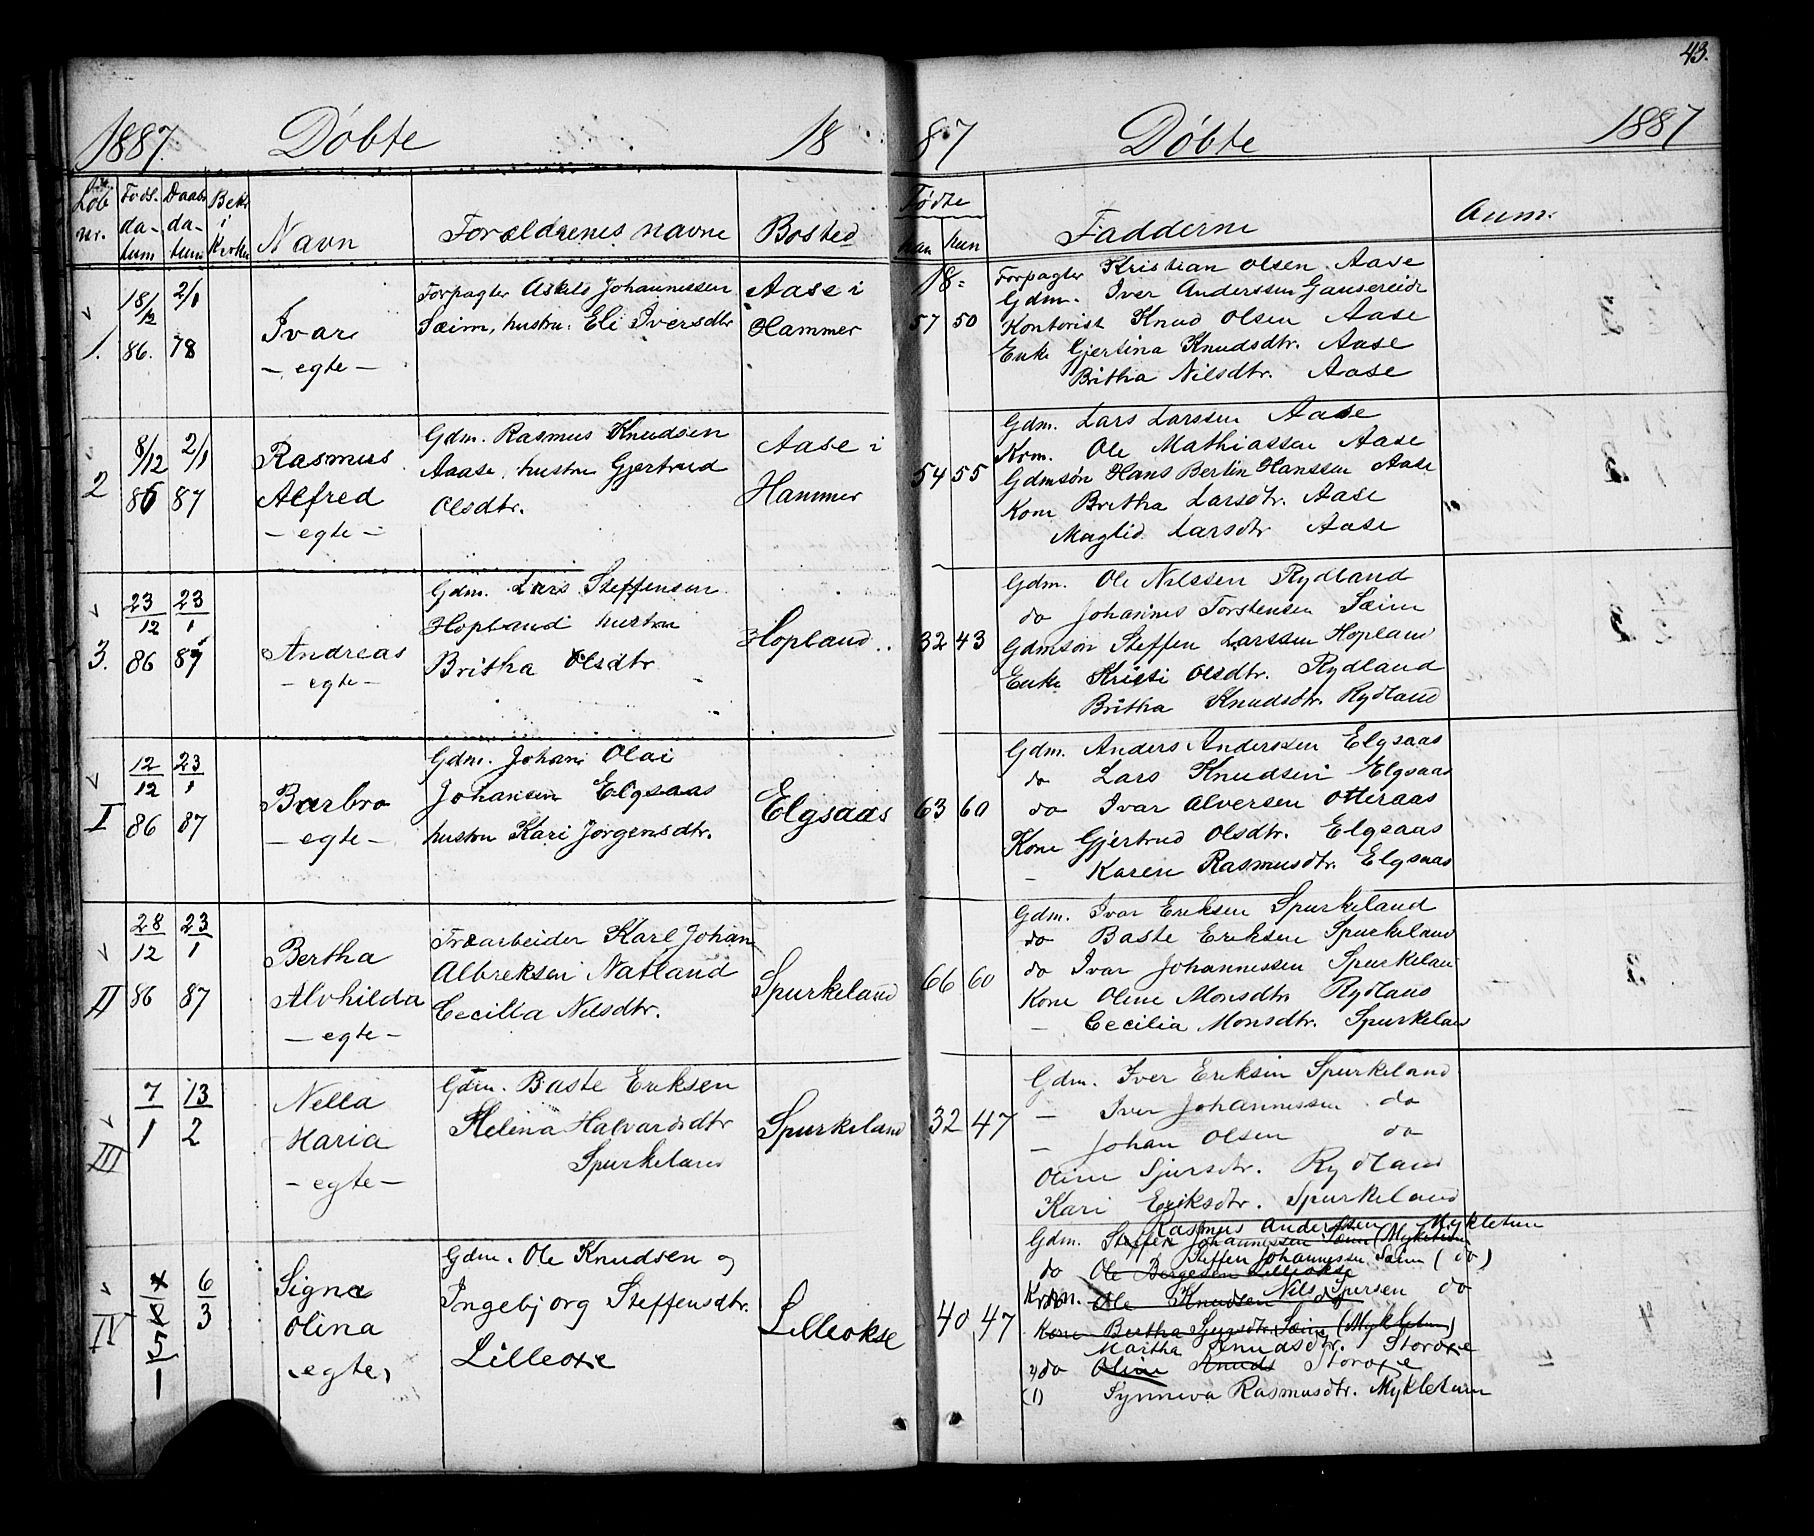 43.
1887. Døbte 18 87 Døbte 1887
Løb nr. Føds. da- tum Daabs da- tum Bekr i Kirken Navn Forældrenes navne Bosted Fødte Man Kun Fadderne Anm.
1. 18/12 86. 2/1 78
Ivar
- egte -
Forpagter Askild Johannessen
Sæim, hustru. Eli Iversdtr
Aase i
Hammer
18
57 50
Forpagter Kristian Olsen Aase
Gdm. Iver Anderssen Gausereide
Kontorist Knud Olsen Aase
Enke Gjertina Knudsdtr. Aase
Britha Nilsdtr. Aase
2 8/12 86 2/1 87
Rasmus
Alfred
- egte -
Gdm. Rasmus Knudsen
Aase, hustru Gjertrud
Olsdtr.
Aase i
Hammer
54 55
Gdm. Lars Larssen Aase
Krm. Ole Mathiassen Aase
Gdmsøn Hans Bertin Hanssen Aase
Kone Britha Larsdtr. Aase
Magtld Larsdtr Aase
3. 23/12 86 23/1 87
Andreas
- egte -
Gdm. Lars Steffensen
Hopland hustru
Britha Olsdtr
Hopland.
32 43
Gdm. Ole Nilssen Rydland
do Johannes Torstensen Sæim
Gdmsøn Steffen Larssen Hopland
Enke Kristi Olsdtr. Rydland
Britha Knudsdtr. Rydland
I 12/12 86 23/1 87
Barbro
- egte -
Gdm. Johan Olai
Johansen Elgsaas
hustru Kari Jørgensdtr.
Elgsaas
63 60
Gdm. Anders Anderssen Elgsaas
do Lars Knudsen Elgsaas
do Ivar Alversen Otteraas
Kone Gjertrud Olsdtr. Elgsaas
- Karen Rasmusdtr. Elgsaas
II 28/12 86 23/1 87
Bertha
Alvhilda
- egte -
Træarbeider Karl Johan
Albreksen Natland
Cecilia Nilsdtr.
Spurkeland
66 60
Gdm. Ivar Eriksen Spurkeland
do Baste Eriksen Spurkeland
do Ivar Johannessen Spurkelan
Kone Oline Monsdtr Rydland
- Cecilia Monsdtr. Spurkeland
III 7/1 13/2
Nella
Maria
- egte -
Gdm. Baste Eriksen
Helena Halvardsdtr
Spurkeland
Spurkeland
32 47
Gdm. Iver Eriksen Spurkeland
- Iver Johannessen do
- Johan Olsen do
Oline Sjursdtr. Rydland
Kari Eriksdtr. Spurkeland
IV 6/3
Signe
Olina
- egte -
Gdm. Ole Knudsen og
Ingebjorg Steffensdtr.
Lilleoxe
Lilleokse
40 47
Rasmus Anderssen Mykletun
Gdm. Steffen Johannessen Sæim (Mykletun)
Steffen Johannessen Sæim (do)
do Ole Børgesen Lilleokse
Nils Iversen do
Krm. Ole Knudsen do
Kone Bertha Sjursdtr. Sæim (Mykletun)
Martha Knudsdtr. Storoxe
do Oline Knuds Storoxe
(1) Synneva Rasmusdtr. Mykletun